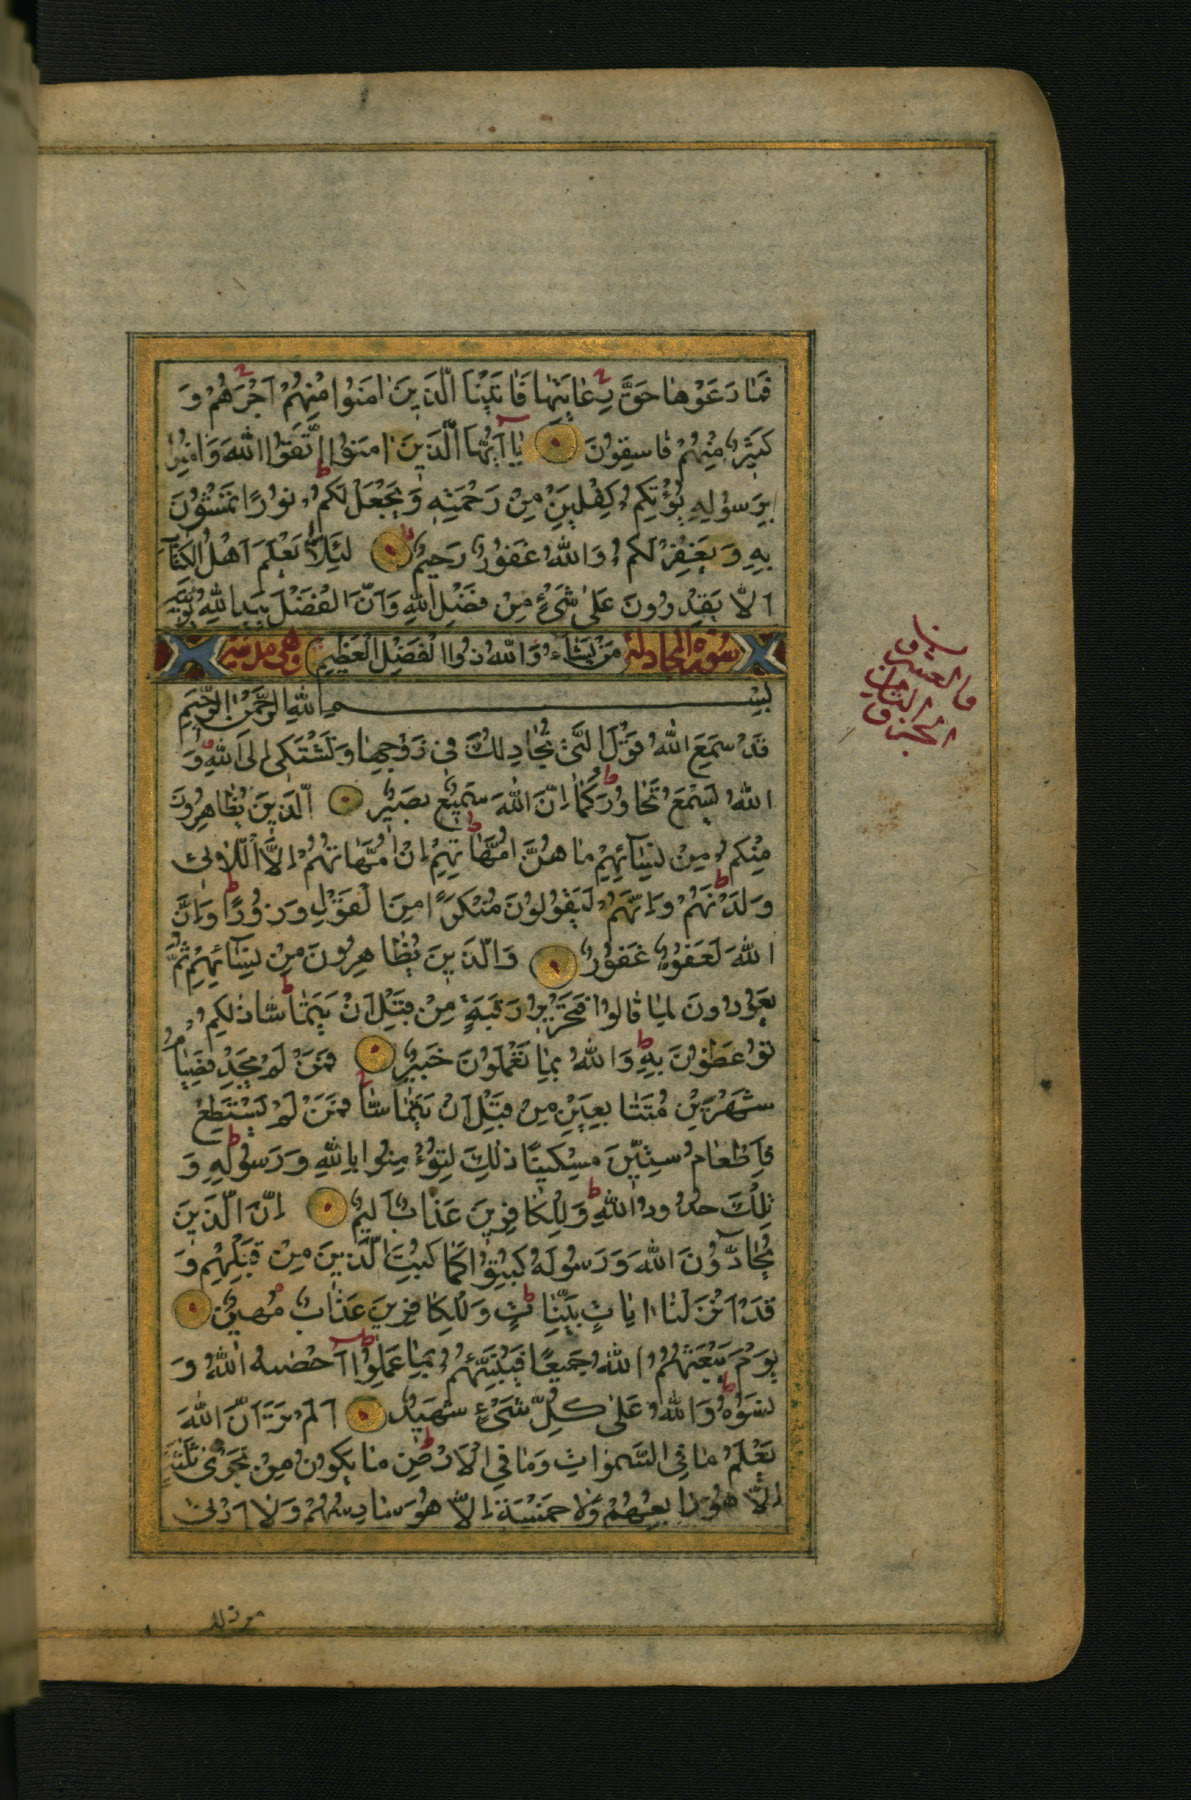 فَمَا رَعَوْهَا حَقَّ رِعَايَتِهَا فَاٰتَيْنَا الَّذِينَ اٰمَنُوا مِنْهُمْ اَجْرَهُمْ وَ
كَثِيرٌ مِنْهُمْ فَاسِقُونَ يَآ اَيُّهَا الَّذِينَ اٰمَنُوا اتَّقُوا اللّٰهَ وَاٰمِنُوا
بِرَسُولِهِ يُؤْتِكُمْ كِفْلَيْنِ مِنْ رَحْمَتِهِ وَيَجْعَلْ لَكُمْ نُورًا تَمْشُونَ
بِهِ وَيَغْفِرْ لَكُمْ وَاللّٰهُ غَفُورٌ رَحِيمٌ لِئَلَّا يَعْلَمَ اَهْلُ الْكِتَابِ
اَلَّا يَقْدِرُونَ عَلٰى شَيْءٍ مِنْ فَضْلِ اللّٰهِ وَاَنَّ الْفَضْلَ بِيَدِ اللّٰهِ يُؤْتِيهِ
سورة المجادلة مَنْ يَشَاءُ وَاللّٰهُ ذُو الْفَضْلِ الْعَظِيمِ وهي مدنية
بِسْمِ اللّٰهِ الرَّحْمٰنِ الرَّحِيمِ
قَدْ سَمِعَ اللّٰهُ قَوْلَ الَّتِي تُجَادِلُكَ فِي زَوْجِهَا وَتَشْتَكِي اِلَى اللّٰهِ وَ
اللّٰهُ يَسْمَعُ تَحَاوُرَكُمَا اِنَّ اللّٰهَ سَمِيعٌ بَصِيرٌ اَلَّذِينَ يُظَاهِرُونَ
مِنْكُمْ مِنْ نِسَآئِهِمْ مَا هُنَّ اُمَّهَاتِهِمْ اِنْ اُمَّهَاتُهُمْ اِلَّا اللّٰائِي
وَلَدْنَهُمْ وَاِنَّهُمْ لَيَقُولُونَ مُنْكَرًا مِنَ الْقَوْلِ وَزُورًا وَاِنَّ
اللّٰهَ لَعَفُوٌّ غَفُورٌ وَالَّذِينَ يُظَاهِرُونَ مِنْ نِسَآئِهِمْ ثُمَّ
يَعُودُونَ لِمَا قَالُوا فَتَحْرِيرُ رَقَبَةٍ مِنْ قَبْلِ اَنْ يَتَمَاسَّا ذٰلِكُمْ
تُوعَظُونَ بِهِ وَاللّٰهُ بِمَا تَعْمَلُونَ خَبِيرٌ فَمَنْ لَمْ يَجِدْ فَصِيَامُ
شَهْرَيْنِ مُتَتَابِعَيْنِ مِنْ قَبْلِ اَنْ يَتَمَاسَّا فَمَنْ لَمْ يَسْتَطِعْ
فَاِطْعَامُ سِتِّينَ مِسْكِينًا ذٰلِكَ لِتُؤْمِنُوا بِاللّٰهِ وَرَسُولِهِ وَ
تِلْكَ حُدُودُ اللّٰهِ وَلِلْكَافِرِينَ عَذَابٌ اَلِيمٌ اِنَّ الَّذِينَ
يُحَآدُّونَ اللّٰهَ وَرَسُولَهُ كُبِتُوا كَمَا كُبِتَ الَّذِينَ مِنْ قَبْلِهِمْ وَ
قَدْ اَنْزَلْنَا اٰيَاتٍ بَيِّنَاتٍ وَلِلْكَافِرِينَ عَذَابٌ مُهِينٌ
يَوْمَ يَبْعَثُهُمُ اللّٰهُ جَمِيعًا فَيُنَبِّئُهُمْ بِمَا عَمِلُوا اَحْصٰىهُ اللّٰهُ وَ
نَسُوهُ وَاللّٰهُ عَلٰى كُلِّ شَيْءٍ شَهِيدٌ اَلَمْ تَرَ اَنَّ اللّٰهَ
يَعْلَمُ مَا فِي السَّمٰوَاتِ وَمَا فِي الْاَرْضِ مَا يَكُونُ مِنْ نَجْوٰى ثَلٰثَةٍ
اِلَّا هُوَ رَابِعُهُمْ وَلَا خَمْسَةٍ اِلَّا هُوَ سَادِسُهُمْ وَلَا اَدْنٰى
من ذلك
الجزو
الثامن
والعشرون